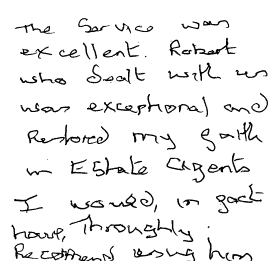 The Service was
excellent. Robert
who Dealt with us
was exceptional and
Restored my faith
in Estate Agents
I would, in fact
have, Throughly
Recommend using him